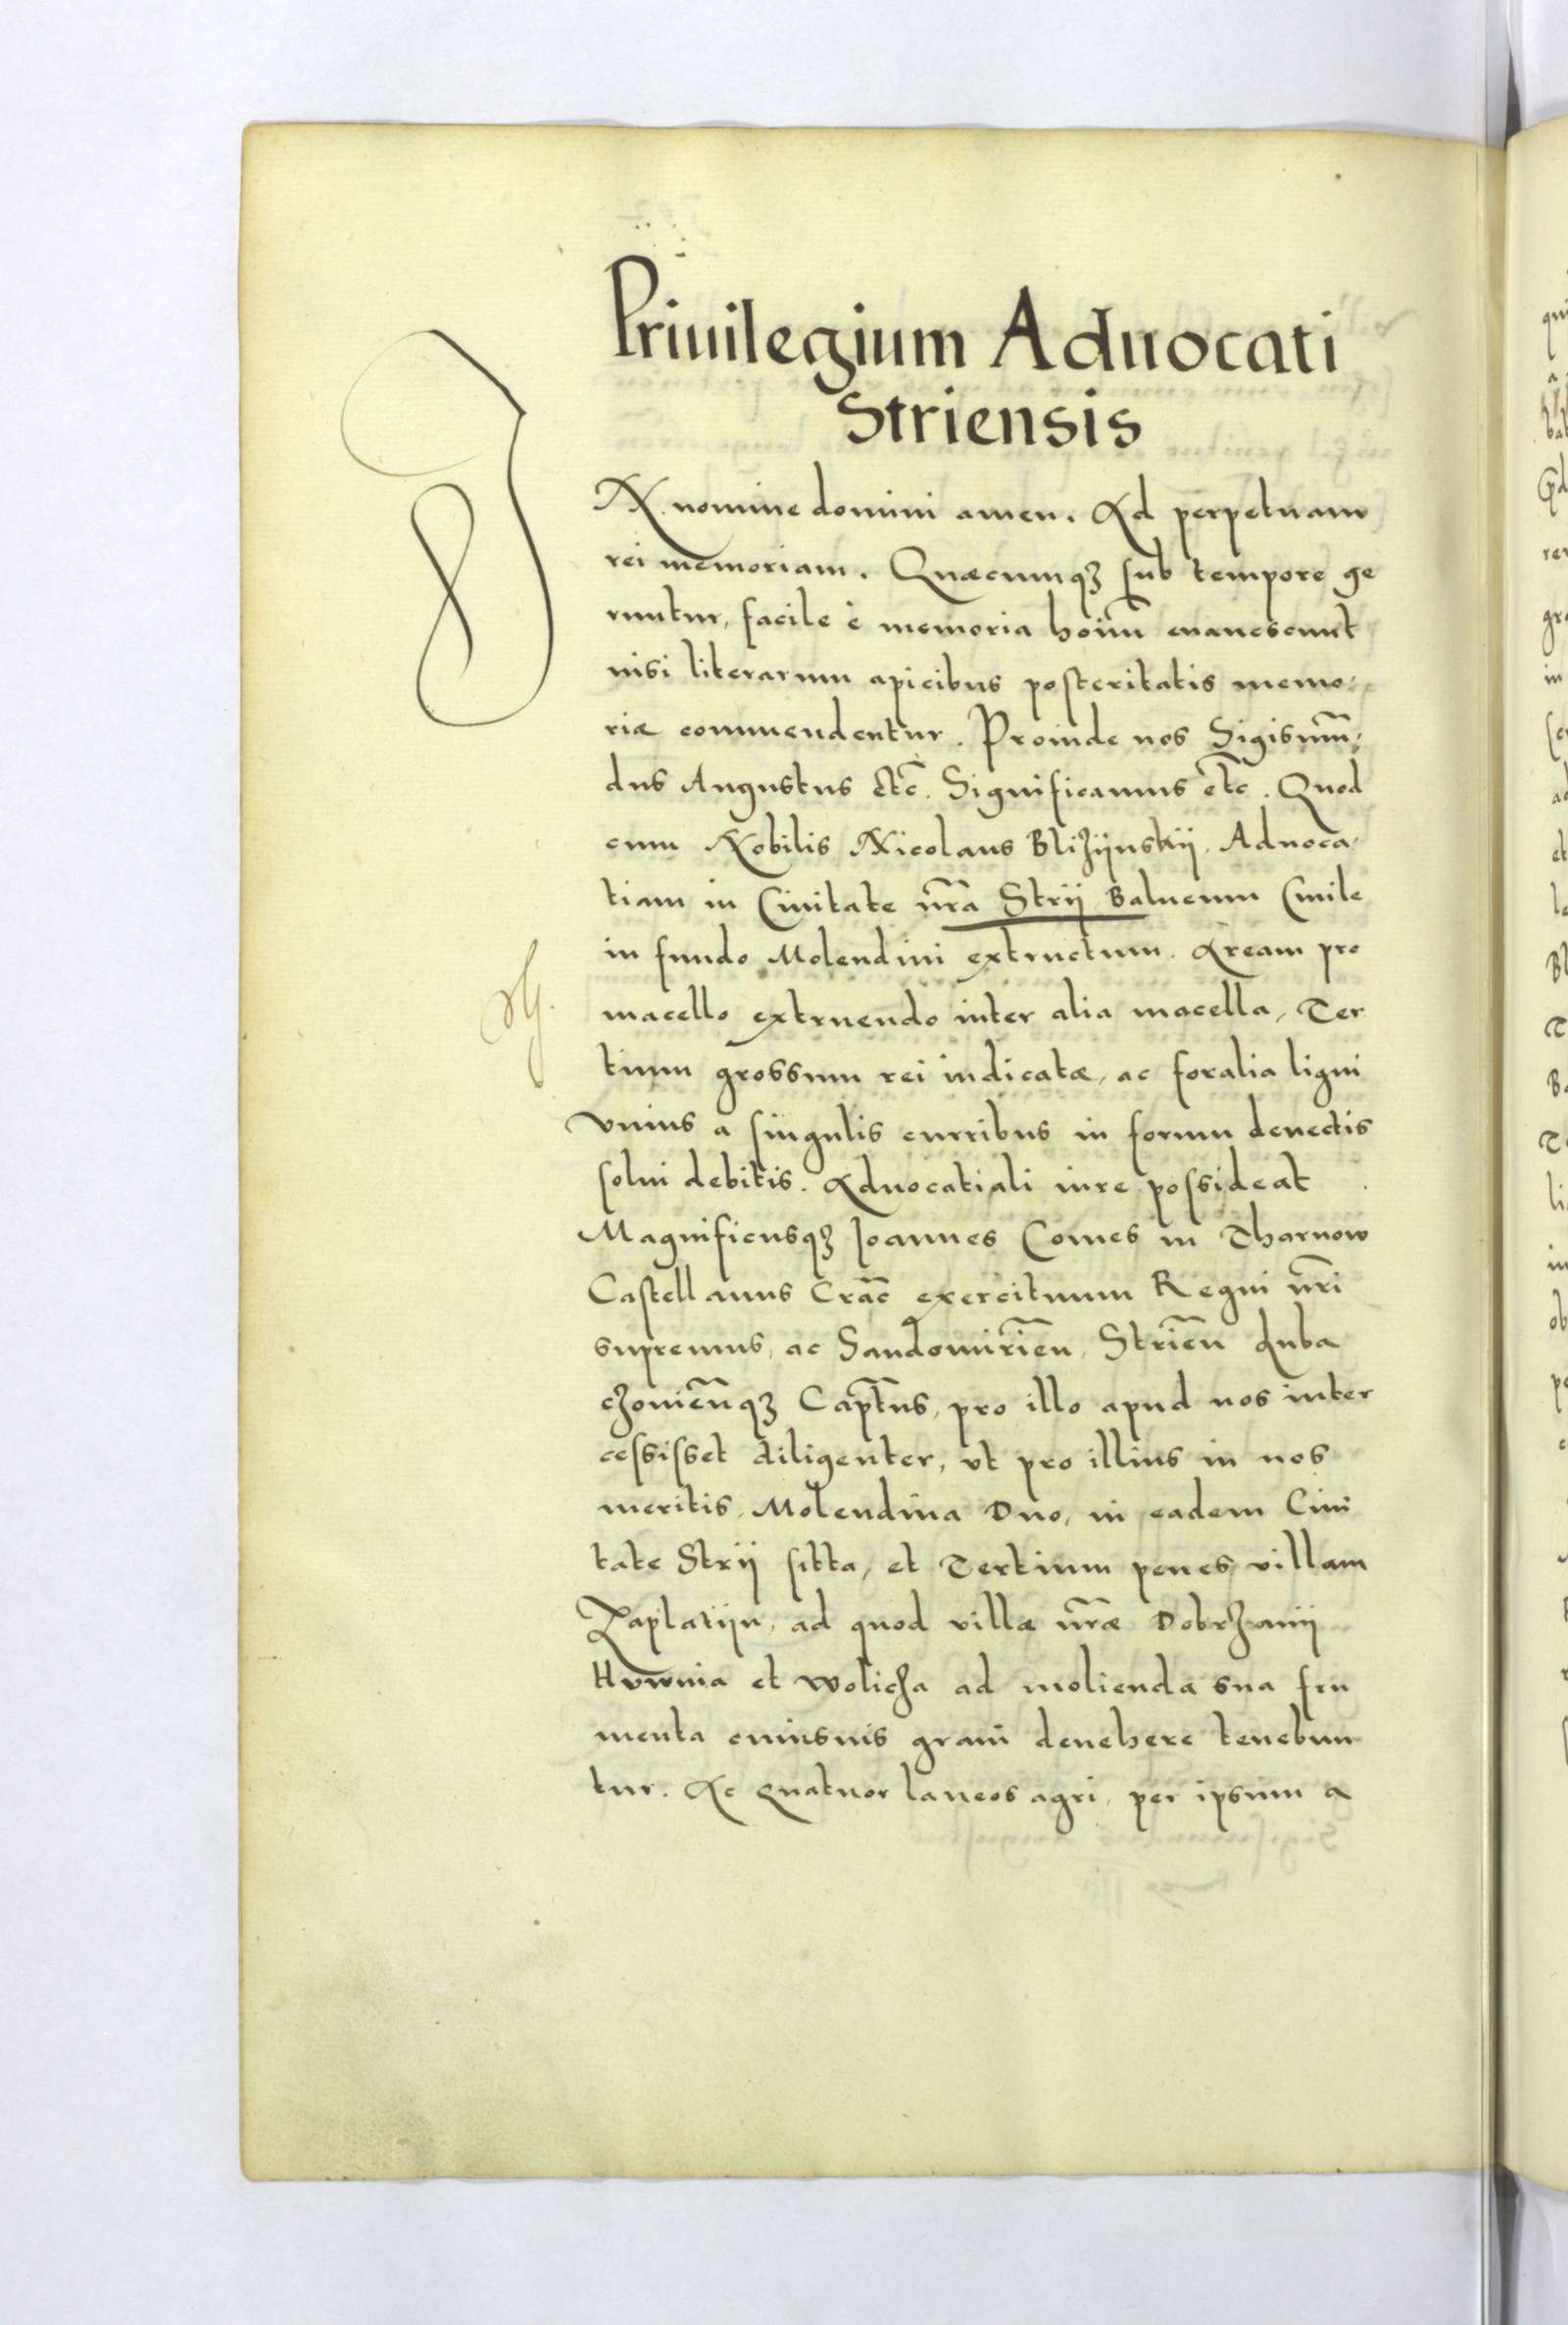 Priuilegium Aduocati
Striensis
IN nomine domini amen. Ad perpetuam
rei memoriam. Quæcumqꝫ sub tempore ge
runtur, facile è memoria hoim̄ euanescunt
nisi literarum apicibus posteritatis memo:
riæ commendentur. Proinde nos Sigismū:
dus Augustus etc̄. Significamus etc̄. Quod
cum Nobilis Nicolaus Bliżijnskij, Aduoca:
tiam in Ciuitate nr̄a Strij Balneum Ciuile
in fundo Molendini extructum. Aream pro
macello extruendo inter alia macella, Ter
tium grossum rei iudicatæ, ac foralia ligni
vnius a singulis curribus in forum deuectis
solui debitis. Aduocatiali iure possideat
Magnificusqꝫ Ioannes Comes in Tharnow
Castellanus Crac̄ exercituum Regni nr̄i
supremus, ac Sandomirień, Strień Luba
czouieńqꝫ Capt̄us, pro illo apud nos inter
cessisset diligenter, vt pro illius in nos
meritis, Molendina Duo, in eadem Ciui
tate Strij sitta, et Tertium penes villam
Zaplatijn, ad quod villæ nr̄æ Dobrzanij
Hownia et wolicza ad molienda sua fru
menta cuiusuis grani deuehere tenebun
tur. Ac Quatuor laneos agri, per ipsum a